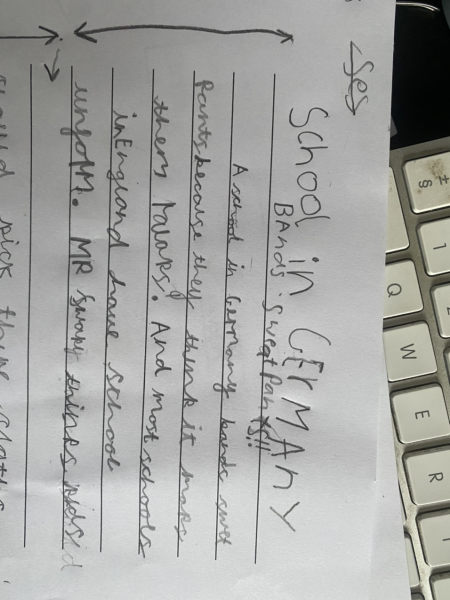 Ses
SCHOOL in GErMANY
BANDS sweatPants!!
A school in Germany bands swet
Pants because they think it maks
them . And most schools
in England have school
uniform. MR kids
should pick there
Q W E R
1